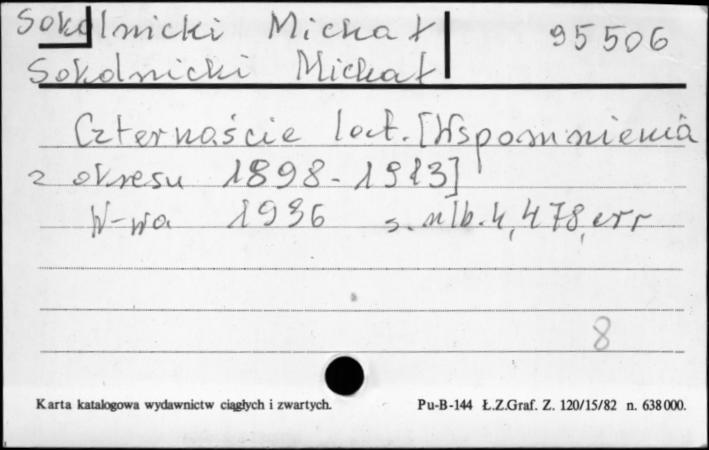 Sokolnicki Michał 95506
Sokolnicki Michał
Czternaście lat. [Wspomnienia
z okresu 1898-1913]
W-wa 1936 s. nlb. 4, 478, err
8
Karta katalogowa wydawnictw ciągłych i zwartych. Pu-B-144 Ł.Z.Graf. Z. 120/15/82 n. 638000.